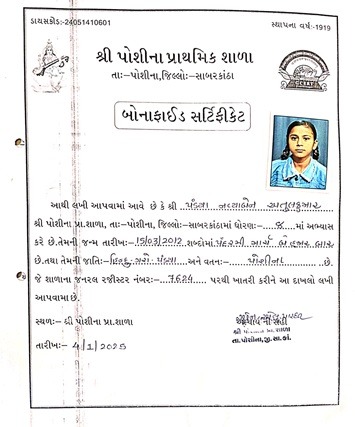 ડાયસકોડઃ-24051410601
સ્થાપના વર્ષઃ-1919
શ્રી પોશીના પ્રાથમિક શાળા
તાઃ-પોશીના,જિલ્લોઃ-સાબરકાંઠા
બોનાફાઈડ સર્ટિફીકેટ
આથી લખી આપવામાં આવે છે કે શ્રી પંડયા નવ્યાબેન અતુલકુમાર
શ્રી પોશીના પ્રા.શાળા, તાઃ-પોશીના, જિલ્લોઃ-સાબરકાંઠામાં ધોરણઃ- ૭ માં અભ્યાસ
કરે છે.તેમની જન્મ તારીખઃ- 15/03/2012 શબ્દોમાં પંદરમી માર્ચ બે હજાર બાર
છે.તથા તેમની જાતિઃ- હિન્દુ પંડયા અને વતનઃ- પોશીના છે.
જે શાળાના જનરલ રજીસ્ટર નંબરઃ- 7624 પરથી ખાતરી કરીને આ દાખલો લખી
આપવામા છે.
સ્થળઃ- શ્રી પોશીના પ્રા.શાળા
તારીખઃ- 4/1/2025
શ્રી પોશીના પ્રા.શાળા
તા.પોશીના,જી.સા.કાં.